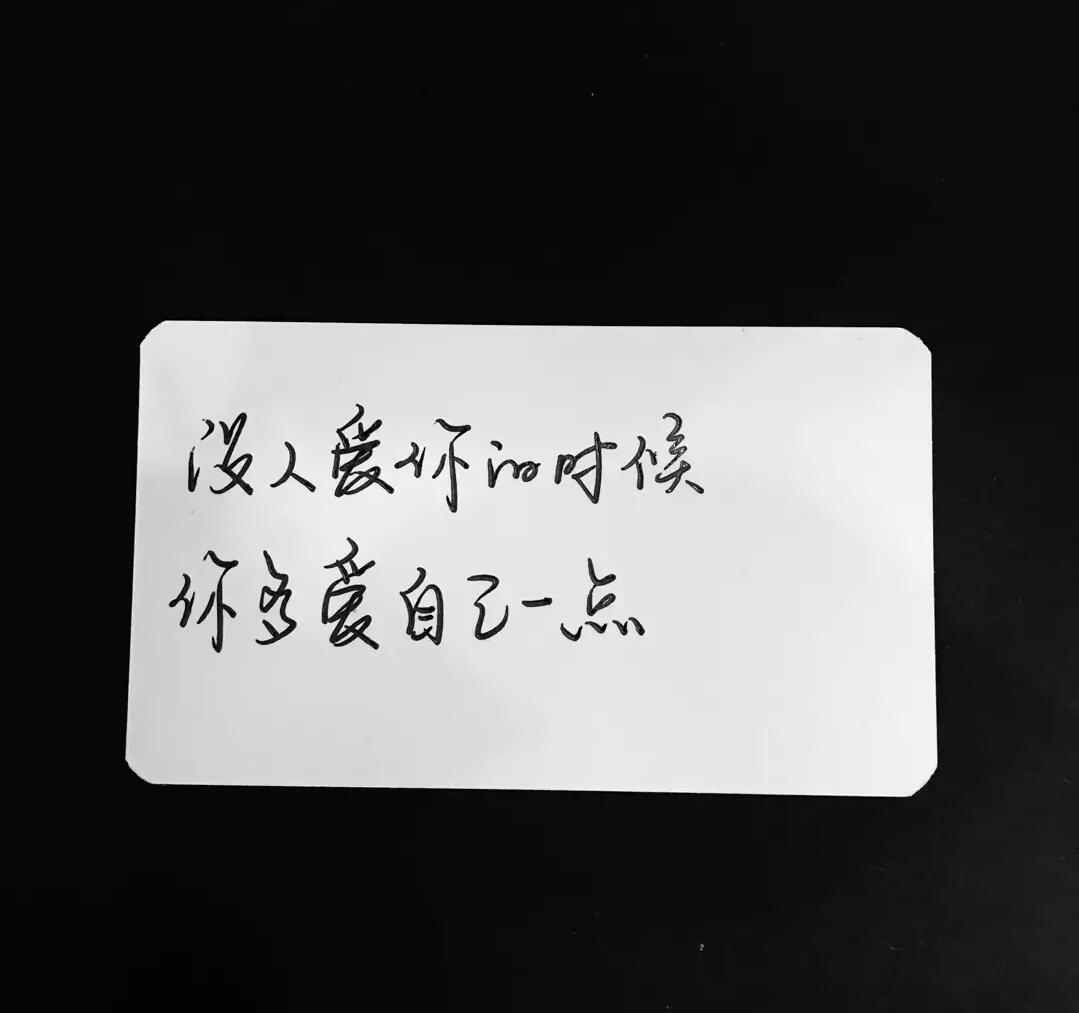 没人爱你的时候
你多爱自己一点